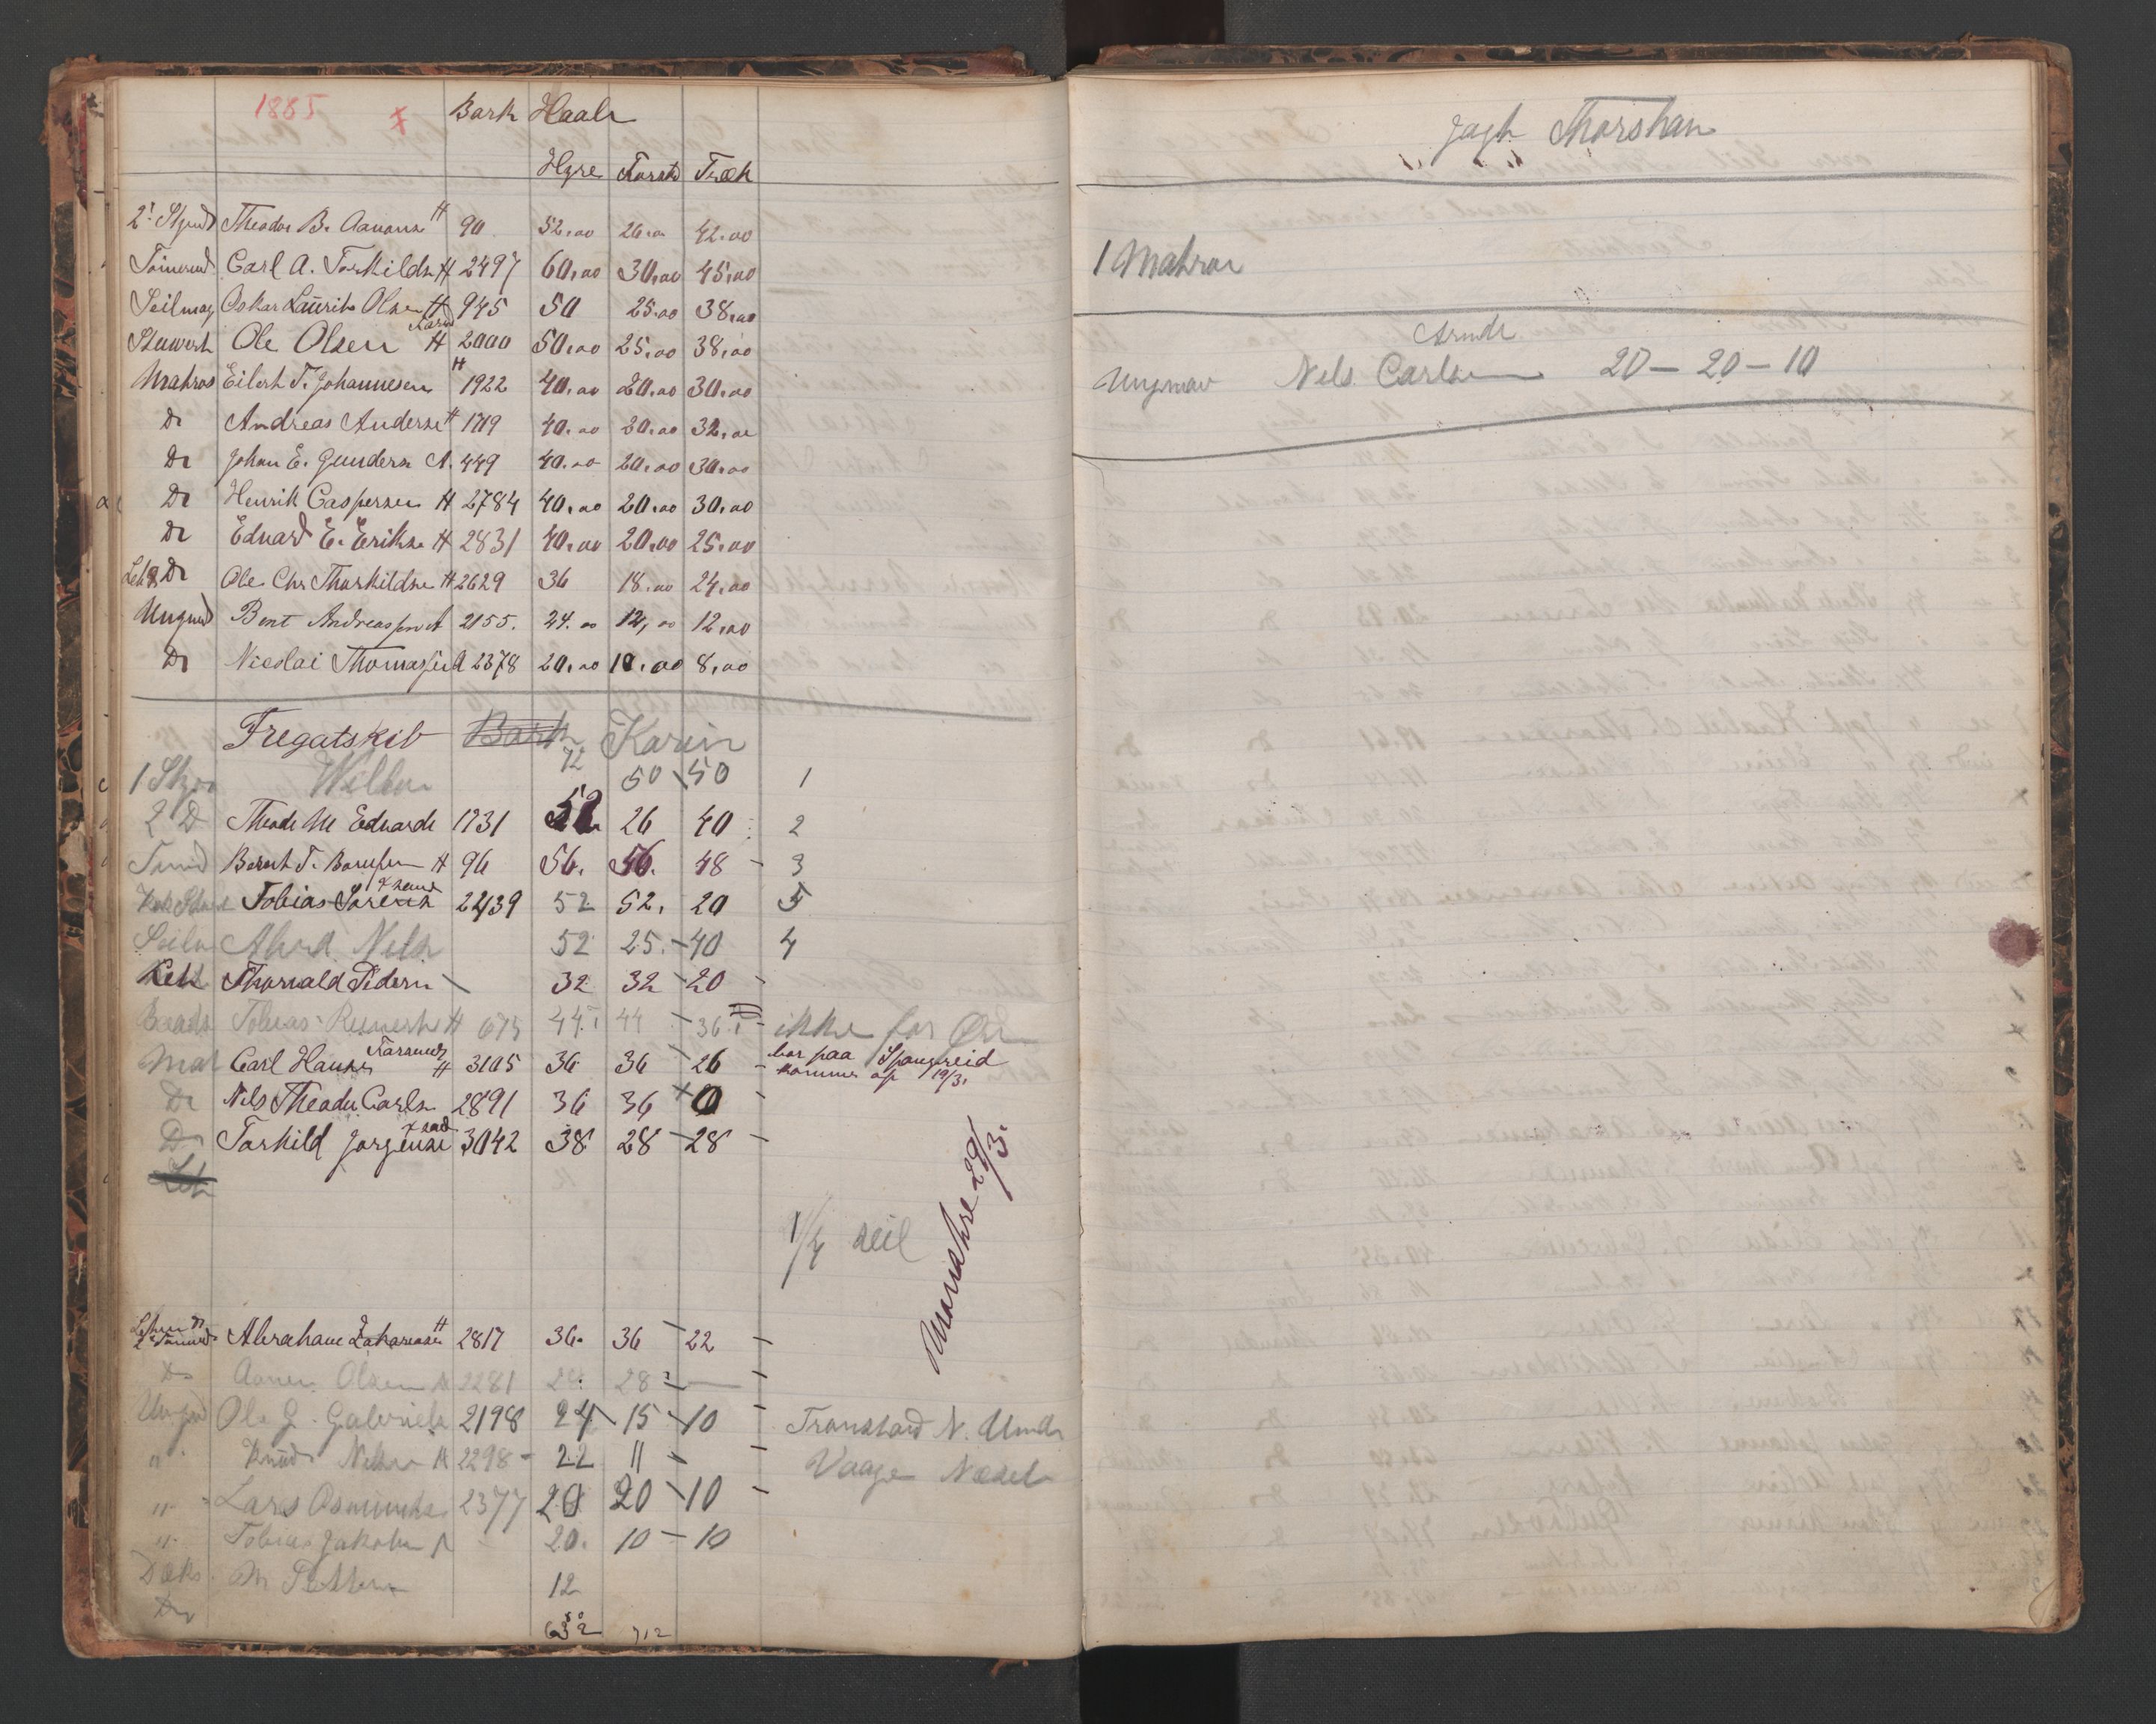 1885 Bark Haab
Hyre Forsk Træk
2. Styrmd Theodor B. Aanons H 90 52.00 26.00 42.00
Tømmermd Carl A. Torkilds H 2497 60.00 30.00 45.00
Seilmag Oskar Laurits Olsen H 945 50 25.00 38.00
Stuwert Ole Olsen Farsund H 2000 50.00 25.00 38.00
Matros Eilert T. Johannesen H 1922 40.00 20.00 30.00
Do Andreas Anderse H 1719 40.00 20.00 32.00
Do Johan E. Gunders A. 449 40.00 20.00 30.00
Do Henrik Caspersen H 2784 40.00 20.00 30.00
Do Eduard E. Erikse H 2831 40.00 20.00 25.00
Let Do Ole Chr Thorkildse H 2629 36 18.00 24.00
Ungmd Bent Andreassen A 2155. 24.00 12,00 12,00
Do Nicolai Thomasen A 2378 20.00 10.00 8.00
Fregatskib Bark Karin
1 Styr 72 50 50 1
2 D Theodr M Eduards 1731 52 26 40 2
Tømd Berent T. H 96 56. 56. 48 - 3
Tobias Sørens 22439 52 52. 20 5
Seilm Nels 52 25. - 40 4
Lett Thorvald Peders 32 32 - 20 -
Baads Tobias Reinerts H 675 44 44 - 36 - ikke for
Mat Carl Hanse Farsund H 3105 36 36 26 - bor paa Spangereid
kommer op 19/3.
Do Nels Theodr Carls 2891 36 36 0 -
Do Torkild Jørgense 3042 38 28 - 28 -
Let
1/4 seil
Mønstre 29/3.
Letm & 2 Tømmd Abraham Zakariase H 2817 36. 36 - 22 -
Do Olsen A 2281 28 -
Ungd Ol. G. Gabriels 2198 24 15 10 - Tronstad N. Undr
" Knud Nelse A 2298 - 22 11 - Vaage Neset
" Lars Osmunds 2377 20 20 - 10 -
" Tobias Jakobs A 20. 10 - 10
Dæks M 12
Do
632 712
Jagt Thorshav
1 Matros
Arndt
Ungmav Nels Carlsen 20 - 20 - 10